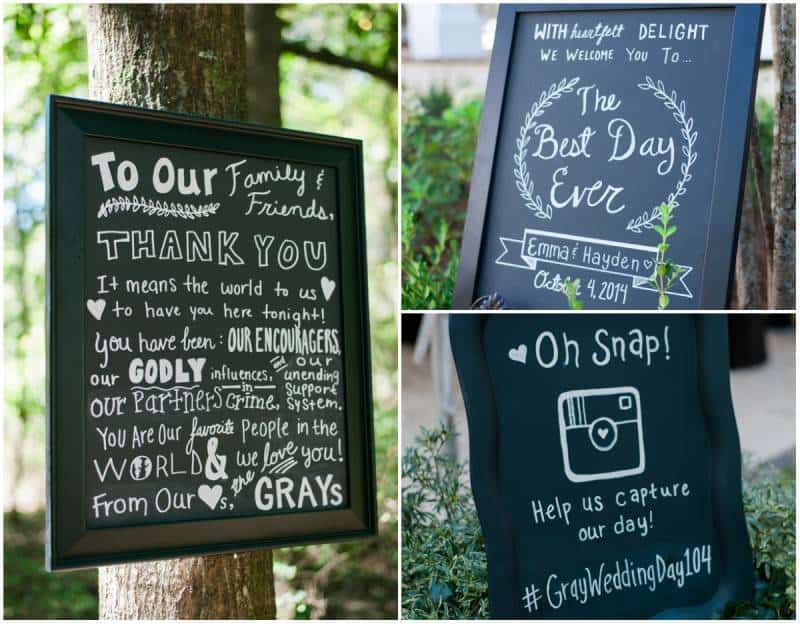 To Our Family &
Friends,
THANK YOU
It means the world to us
to have you here tonight!
you have been: OUR ENCOURAGERS,
our GODLY influences, and our unending support system.
our Partners in crime,
You Are Our favorite People in the
WORLD & we love you!
From Our s, the GRAYs
WITH heartfelt DELIGHT
WE WELCOME YOU TO...
The
Best Day
Ever
Emma & Hayden
October 4, 2014
Oh Snap!
Help us capture
our day!
#GrayWeddingDay104